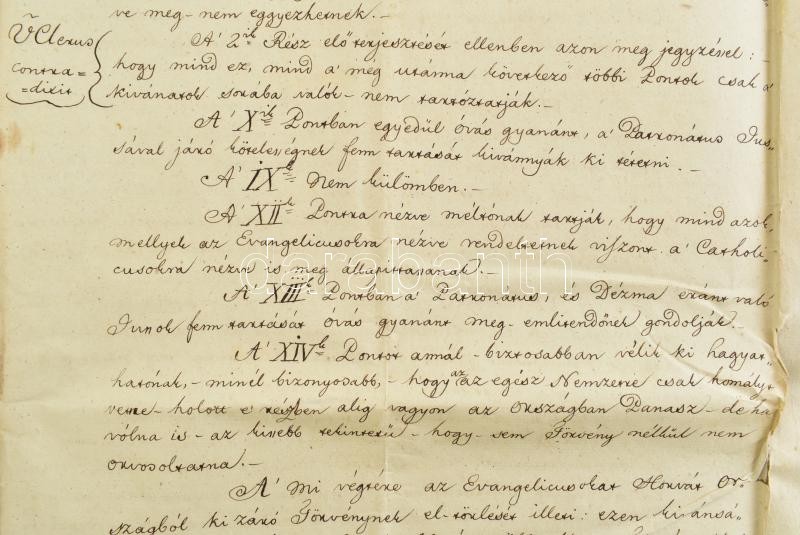 ve meg-nem eggyezhetnek.-
V. Clerus
contra=
=dixit
A' 2ik Rész előterjesztését ellenben azon meg jegyzéssel:-
hogy mind ez, mind a' még utánna következő többi Pontok csak a'
kivánatok sorába valók- nem tartóztatják.-
A' Xik Pontban egyedül óvás gyanánt, a' Patronátus Jus-
sával járó kötelességnek fenn tartását kivánnyák ki tétetni.-
A' IXk Nem külömben.-
A' XIIk Pontra nézve méltónak tartják, hogy mind azok,
mellyek az Evangelicusokra nézve rendeltetnek viszont a' Catholi-
cusokra nézve is meg állapíttassanak.-
darabanth
A' XIIIk Pontban a' Patronátus, és Dézma eránt való
Jusok fenn tartását óvás gyanánt meg-emlitendőnek gondolják.-
A' XIVk Pontot annál- biztosabban vélik ki hagyat-
hatónak,- minél bizonyosabb,- hogy az az egész Nemzetre csak homályt
vetne- holott e' részben alig vagyon az Országban Panasz- de ha
vólna is- az kissebb tekintetű- hogy-sem Törvény nélkül nem
orvosoltatna.-
A' mi végtére az Evangelicusokat Horvát Or-
szágból ki záró Törvénynek el-törlését illeti: ezen kivánsá-